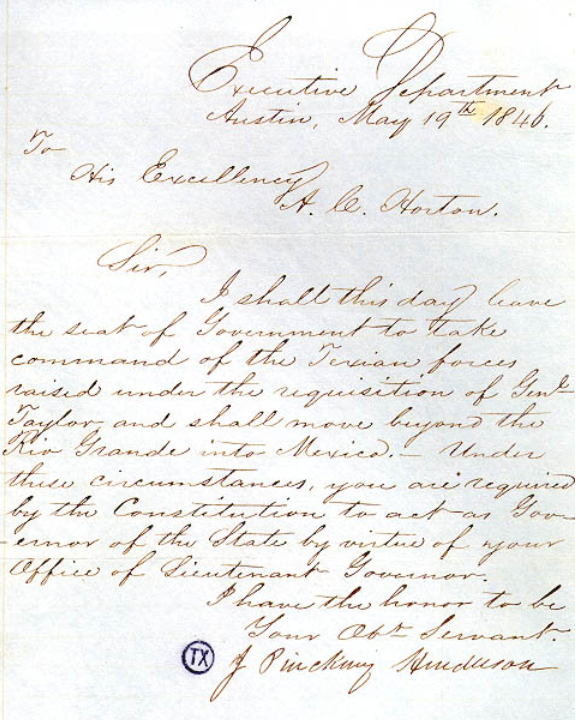 Executive Department
Austin, May 19th 1846.
To
His Excellency
A. C. Horton.
Sir,
I shall this day leave
the seat of Government to take
command of the Texian forces
raised under the requisition of Genl.
Taylor and shall move beyond the
Rio Grande into Mexico.— Under
these circumstances, you are required
by the Constitution to act as Gov-
ernor of the State by virtue of your
Office of Lieutenant Governor.
I have the honor to be
Your Obt. Servant.
J Pinckney Henderson
TX